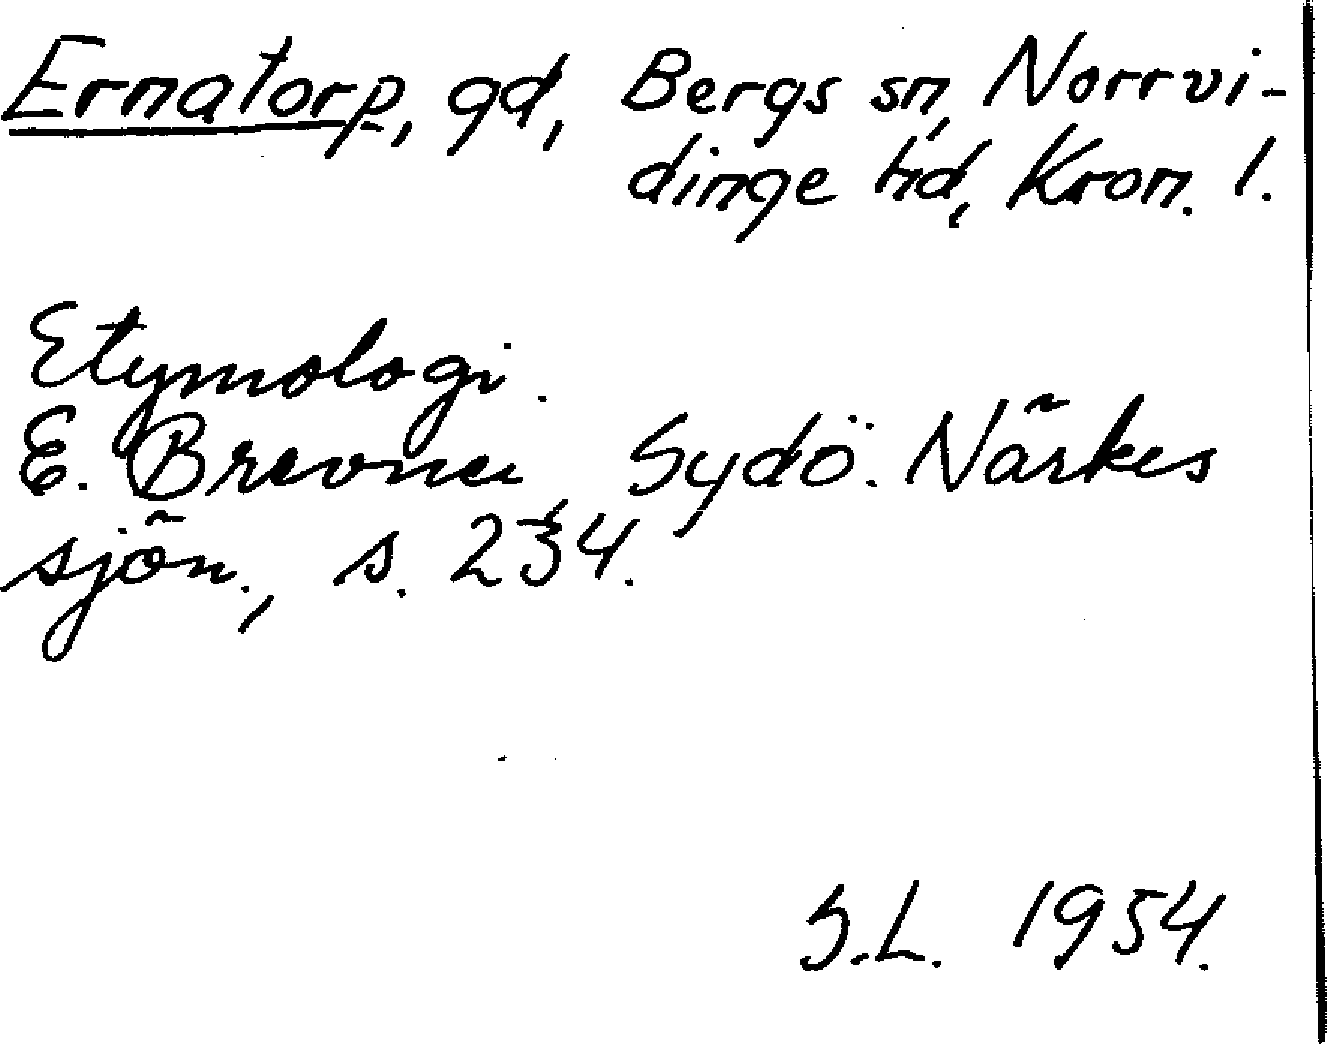 Ernatorp, gd, Bergs sn, Norrvi-
dinge hd, Kron. l.
Etymologi.
E. Brevner, Sydö. Närkes
sjön., s. 234.
S.L. 1954.